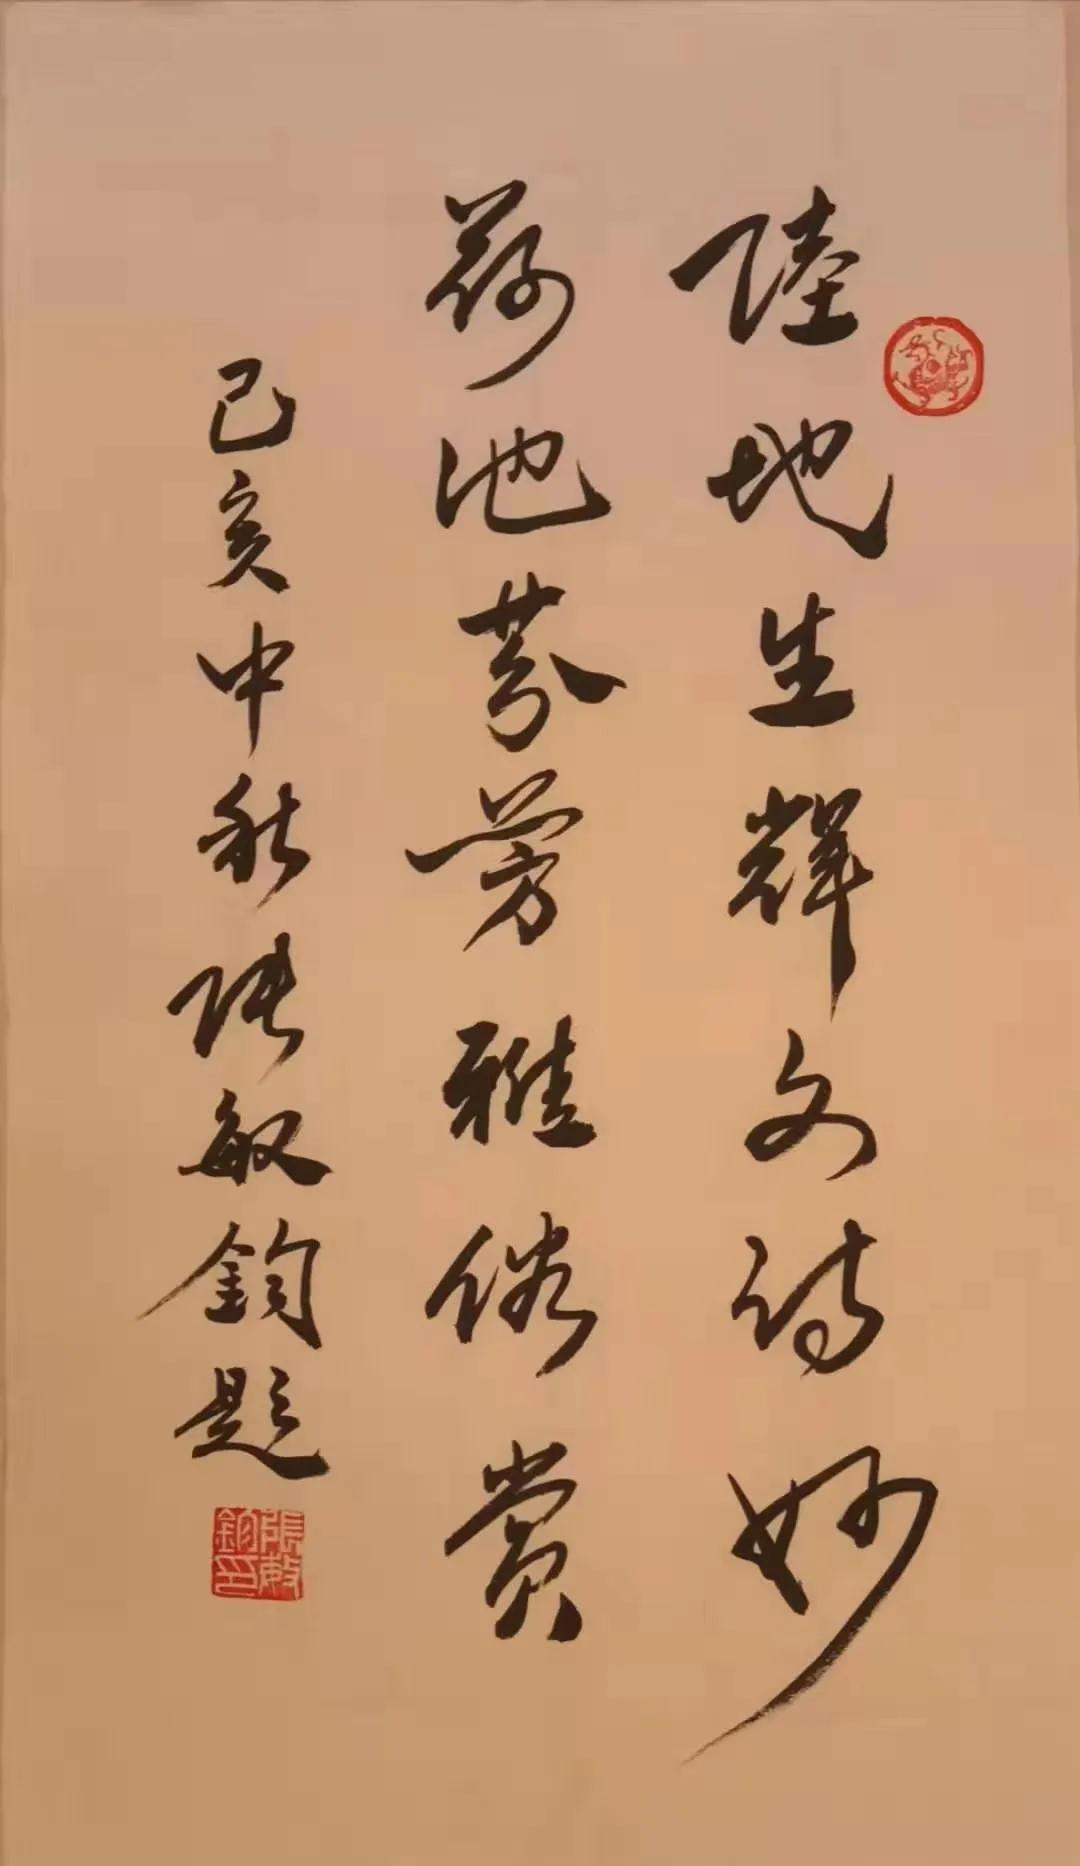 陸地生輝文詩妙
荷池芬芳雅俗賞
己亥中秋張敏鈞題
張敏鈞印